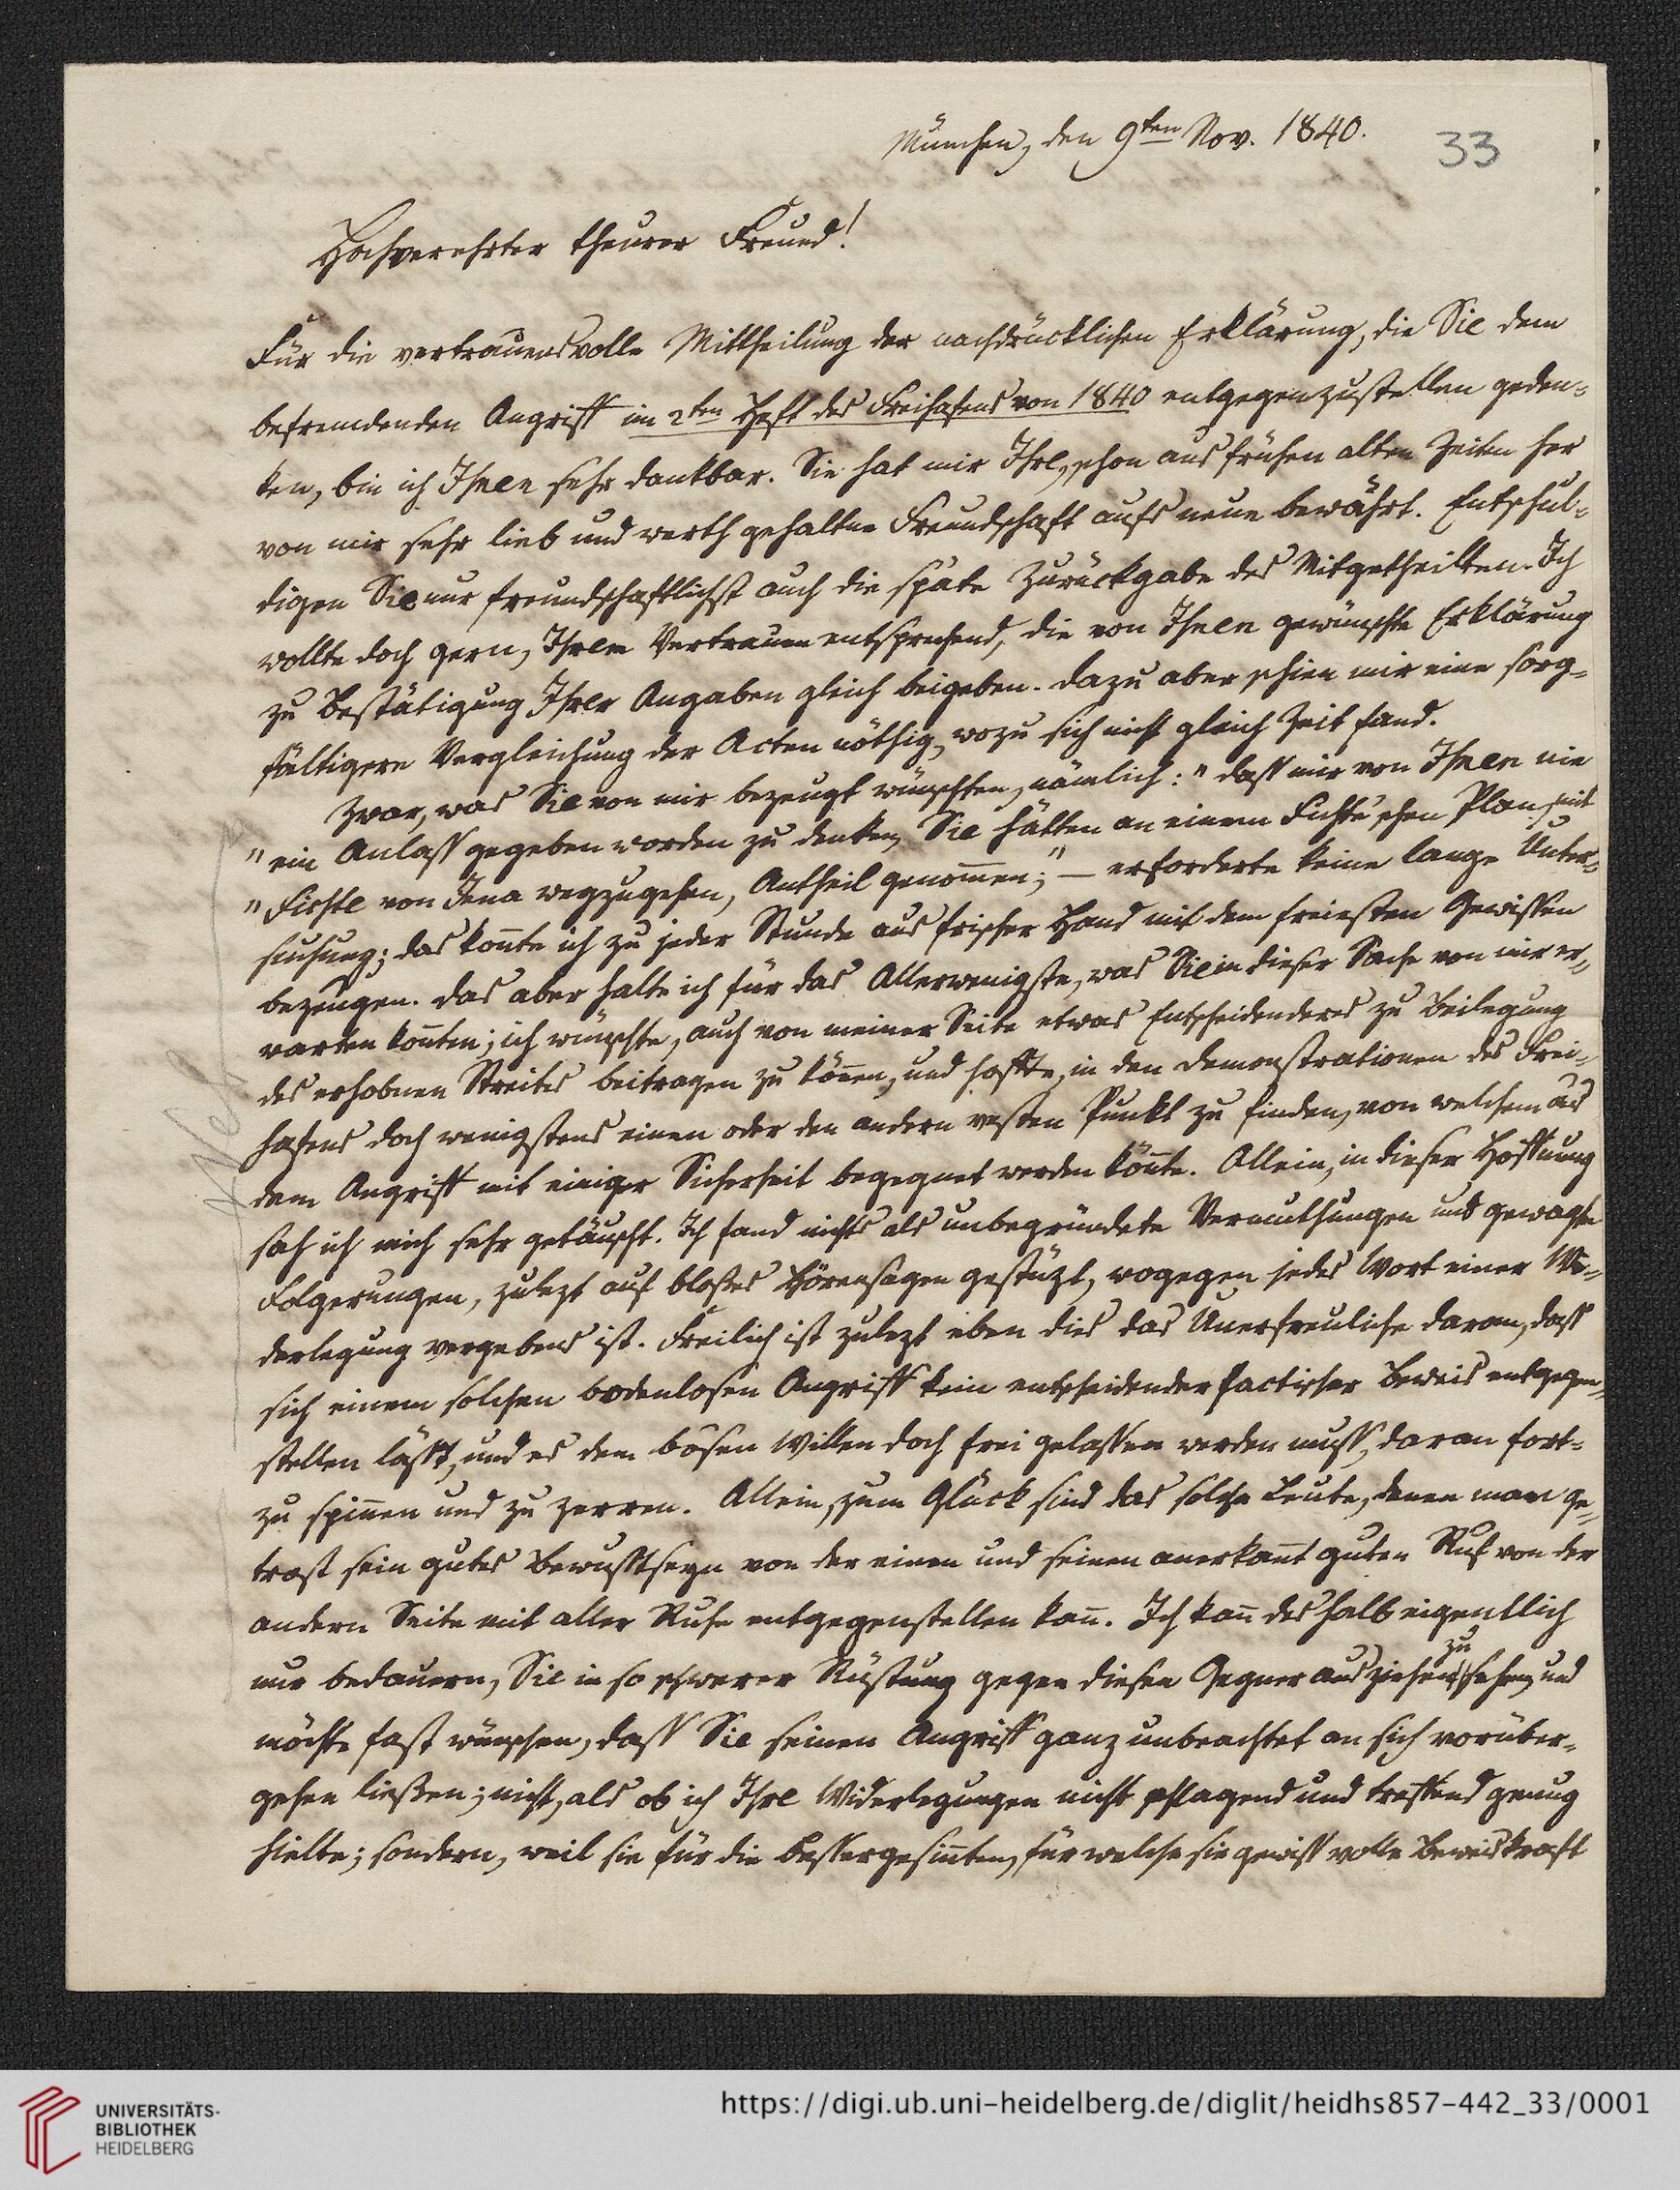 München, den 9ten Nov. 1840.
33
Hochverehrter theurer Freund!
Für die vertrauensvolle Mittheilung der nachdrücklichen Erklärung, die Sie dem
befremdenden Angriff im 2ten Heft des Freihafens von 1840 entgegenzustellen geden-
ken, bin ich Ihnen sehr dankbar. Sie hat mir Ihre, schon aus frühen alten Zeiten her
von mir sehr lieb und werth gehaltne Freundschaft aufs neue bewährt. Entschul-
digen Sie nur freundschaftlichst auch die späte Zurückgabe des Mitgetheilten. Ich
wollte doch gern, Ihrem Vertrauen entsprechend, die von Ihnen gewünschte Erklärung
zu Bestätigung Ihrer Angaben gleich beigeben. Dazu aber schien mir eine sorg-
fältigere Vergleichung der Acten nöthig, wozu sich nicht gleich Zeit fand.
Zwar, was Sie von mir bezeugt wünschten, nämlich: "daß mir von Ihnen nie
"ein Anlaß gegeben worden zu denken, Sie hätten an einem Fichte'schen Plan, mit
"Fichte von Jena wegzugehen, Antheil genom̄en;" – erforderte keine lange Unter-
suchung; das kon̄te ich zu jeder Stunde aus frischer Hand mit dem freiesten Gewissen
bezeugen. Das aber halte ich für das Allerwenigste, was Sie in dieser Sache von mir er-
warten kon̄ten; ich wünschte, auch von meiner Seite etwas Entscheidenderes zu Beilegung
des erhobnen Streites beitragen zu kön̄en, und hoffte, in den Demonstrationen des Frei-
hafens doch wenigstens einen oder den andern vesten Punkt zu finden, von welchem aus
dem Angriff mit einiger Sicherheit begegnet werden kön̄te. Allein, in dieser Hoffnung
sah ich mich sehr getäuscht. Ich fand nichts als unbegründete Vermuthungen und gewagte
Folgerungen, zulezt auf bloßes Hörensagen gestüzt, wogegen jedes Wort einer Wi-
derlegung vergebens ist. Freilich ist zulezt eben dies das Unerfreuliche daran, daß
sich einem solchen bodenlosen Angriff kein entscheidender factischer Beweis entgegen-
stellen läßt, und es dem bösen Willen doch frei gelassen werden muß, daran fort-
zu spin̄en und zu zerren. Allein, zum Glück sind das solche Leute, denen man ge-
trost sein gutes Bewußtseyn von der einen und seinen anerkan̄t guten Ruf von der
andern Seite mit aller Ruhe entgegenstellen kan̄. Ich kan̄ deshalb eigentlich
nur bedauern, Sie in so schwerer Rüstung gegen diesen Gegner ausziehen zu sehen, und
möchte fast wünschen, daß Sie seinen Angriff ganz unbeachtet an sich vorüber-
gehen ließen; nicht, als ob ich Ihre Widerlegungen nicht schlagend und treffend genug
hielte; sondern, weil sie für die Bessergesin̄ten, für welche sie gewiß volle Beweiskraft
UNIVERSITÄTS-
BIBLIOTHEK
HEIDELBERG
https://digi.ub.uni-heidelberg.de/diglit/heidhs857-442_33/0001